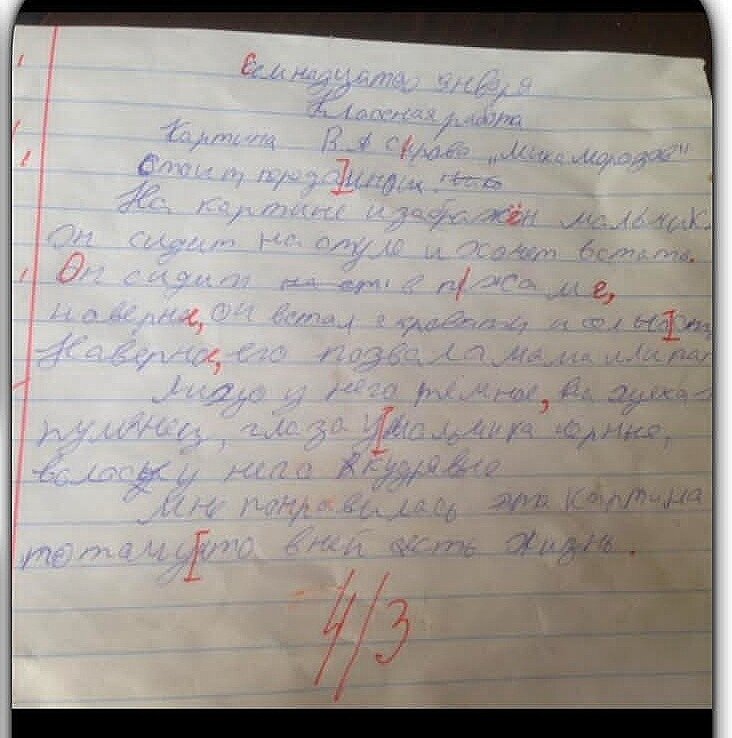 Семнадцатое января
Классная работа
Картина В. А Сърова „Мика Морозов"
На картине изображён мальчик.
Он сидит на стуле и хочет встать.
Он сидит в пижаме,
наверна, он встал с кровати и
Наверна, его позвала мама или пап
Лицо у него тёмное, на щеках
румянец, глаза у мальчика чёрные,
воласы у него кудрявые
Мне понравилась эта картина
потамушта в ней есть жизнь.
4/3